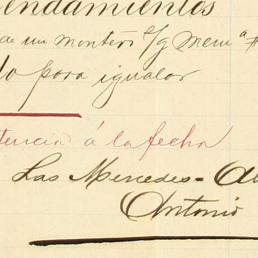 endamientos
de un montero c/g Mem.ª
do para igualar
tencia á la fecha
Las Mercedes - A
Antonio